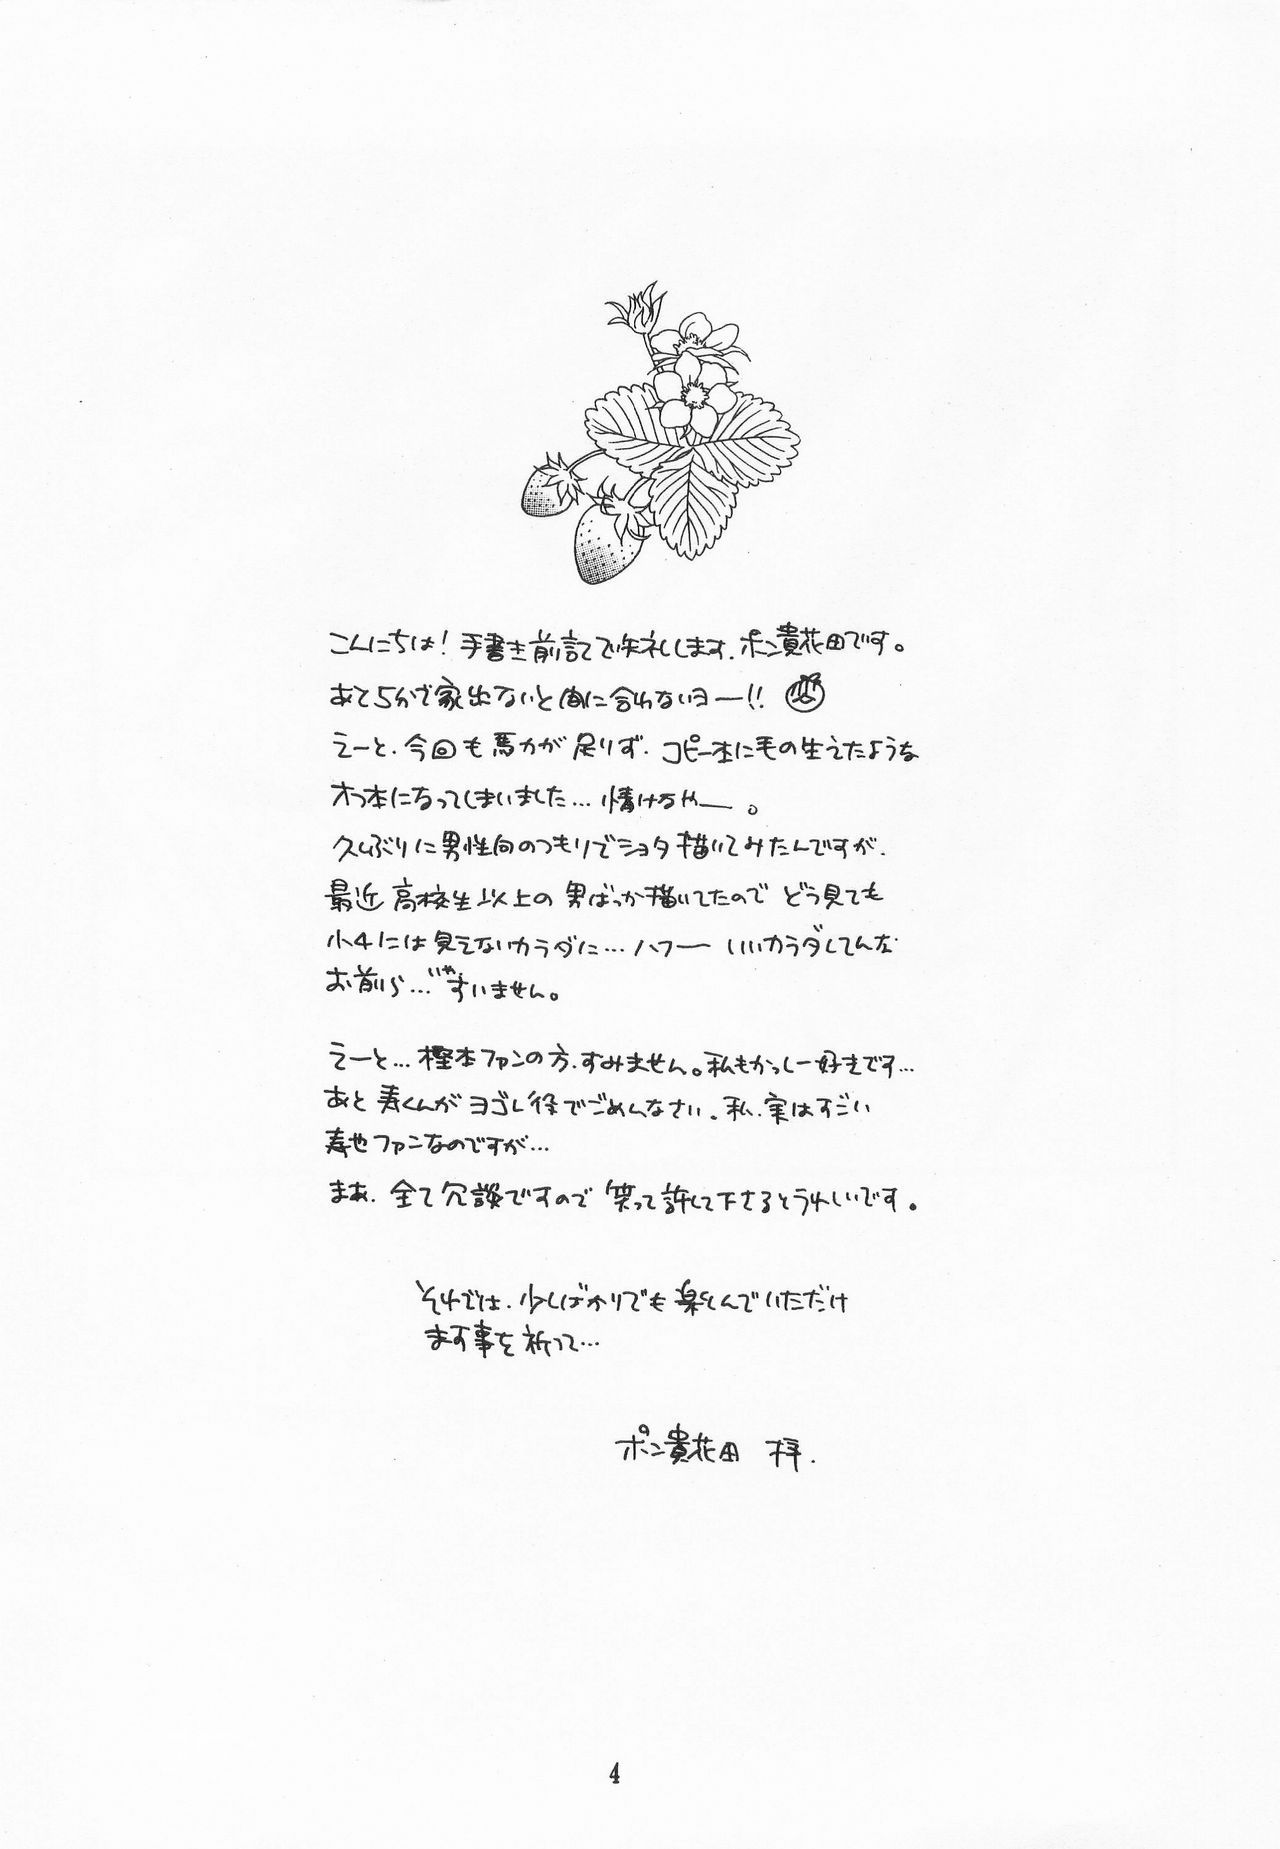 こんにちは！手書き前記で失礼します、ポン貴花田です。
あと5分で家出ないと間に合わないヨー!!
えーと、今回も馬力が足りず、コピー本に毛の生えたような
オフ本になってしまいました…情けなやー。
久しぶりに男性向のつもりでショタ描いてみたんですが、
最近高校生以上の男ばっか描いてたのでどう見ても
小4には見えないカラダに…ハフー いいカラダしてんなお
お前ら…いやすいません。
えーと…樫本ファンの方、すみません。私もかっしー好きです…
あと寿くんがヨゴレ役でごめんなさい。私、実はすごい
寿也ファンなのですが…
まあ、全て冗談ですので笑って許して下さるとうれしいです。
それでは、少しばかりでも楽しんでいただけ
ます事を祈って…
ポン貴花田 梓.
4